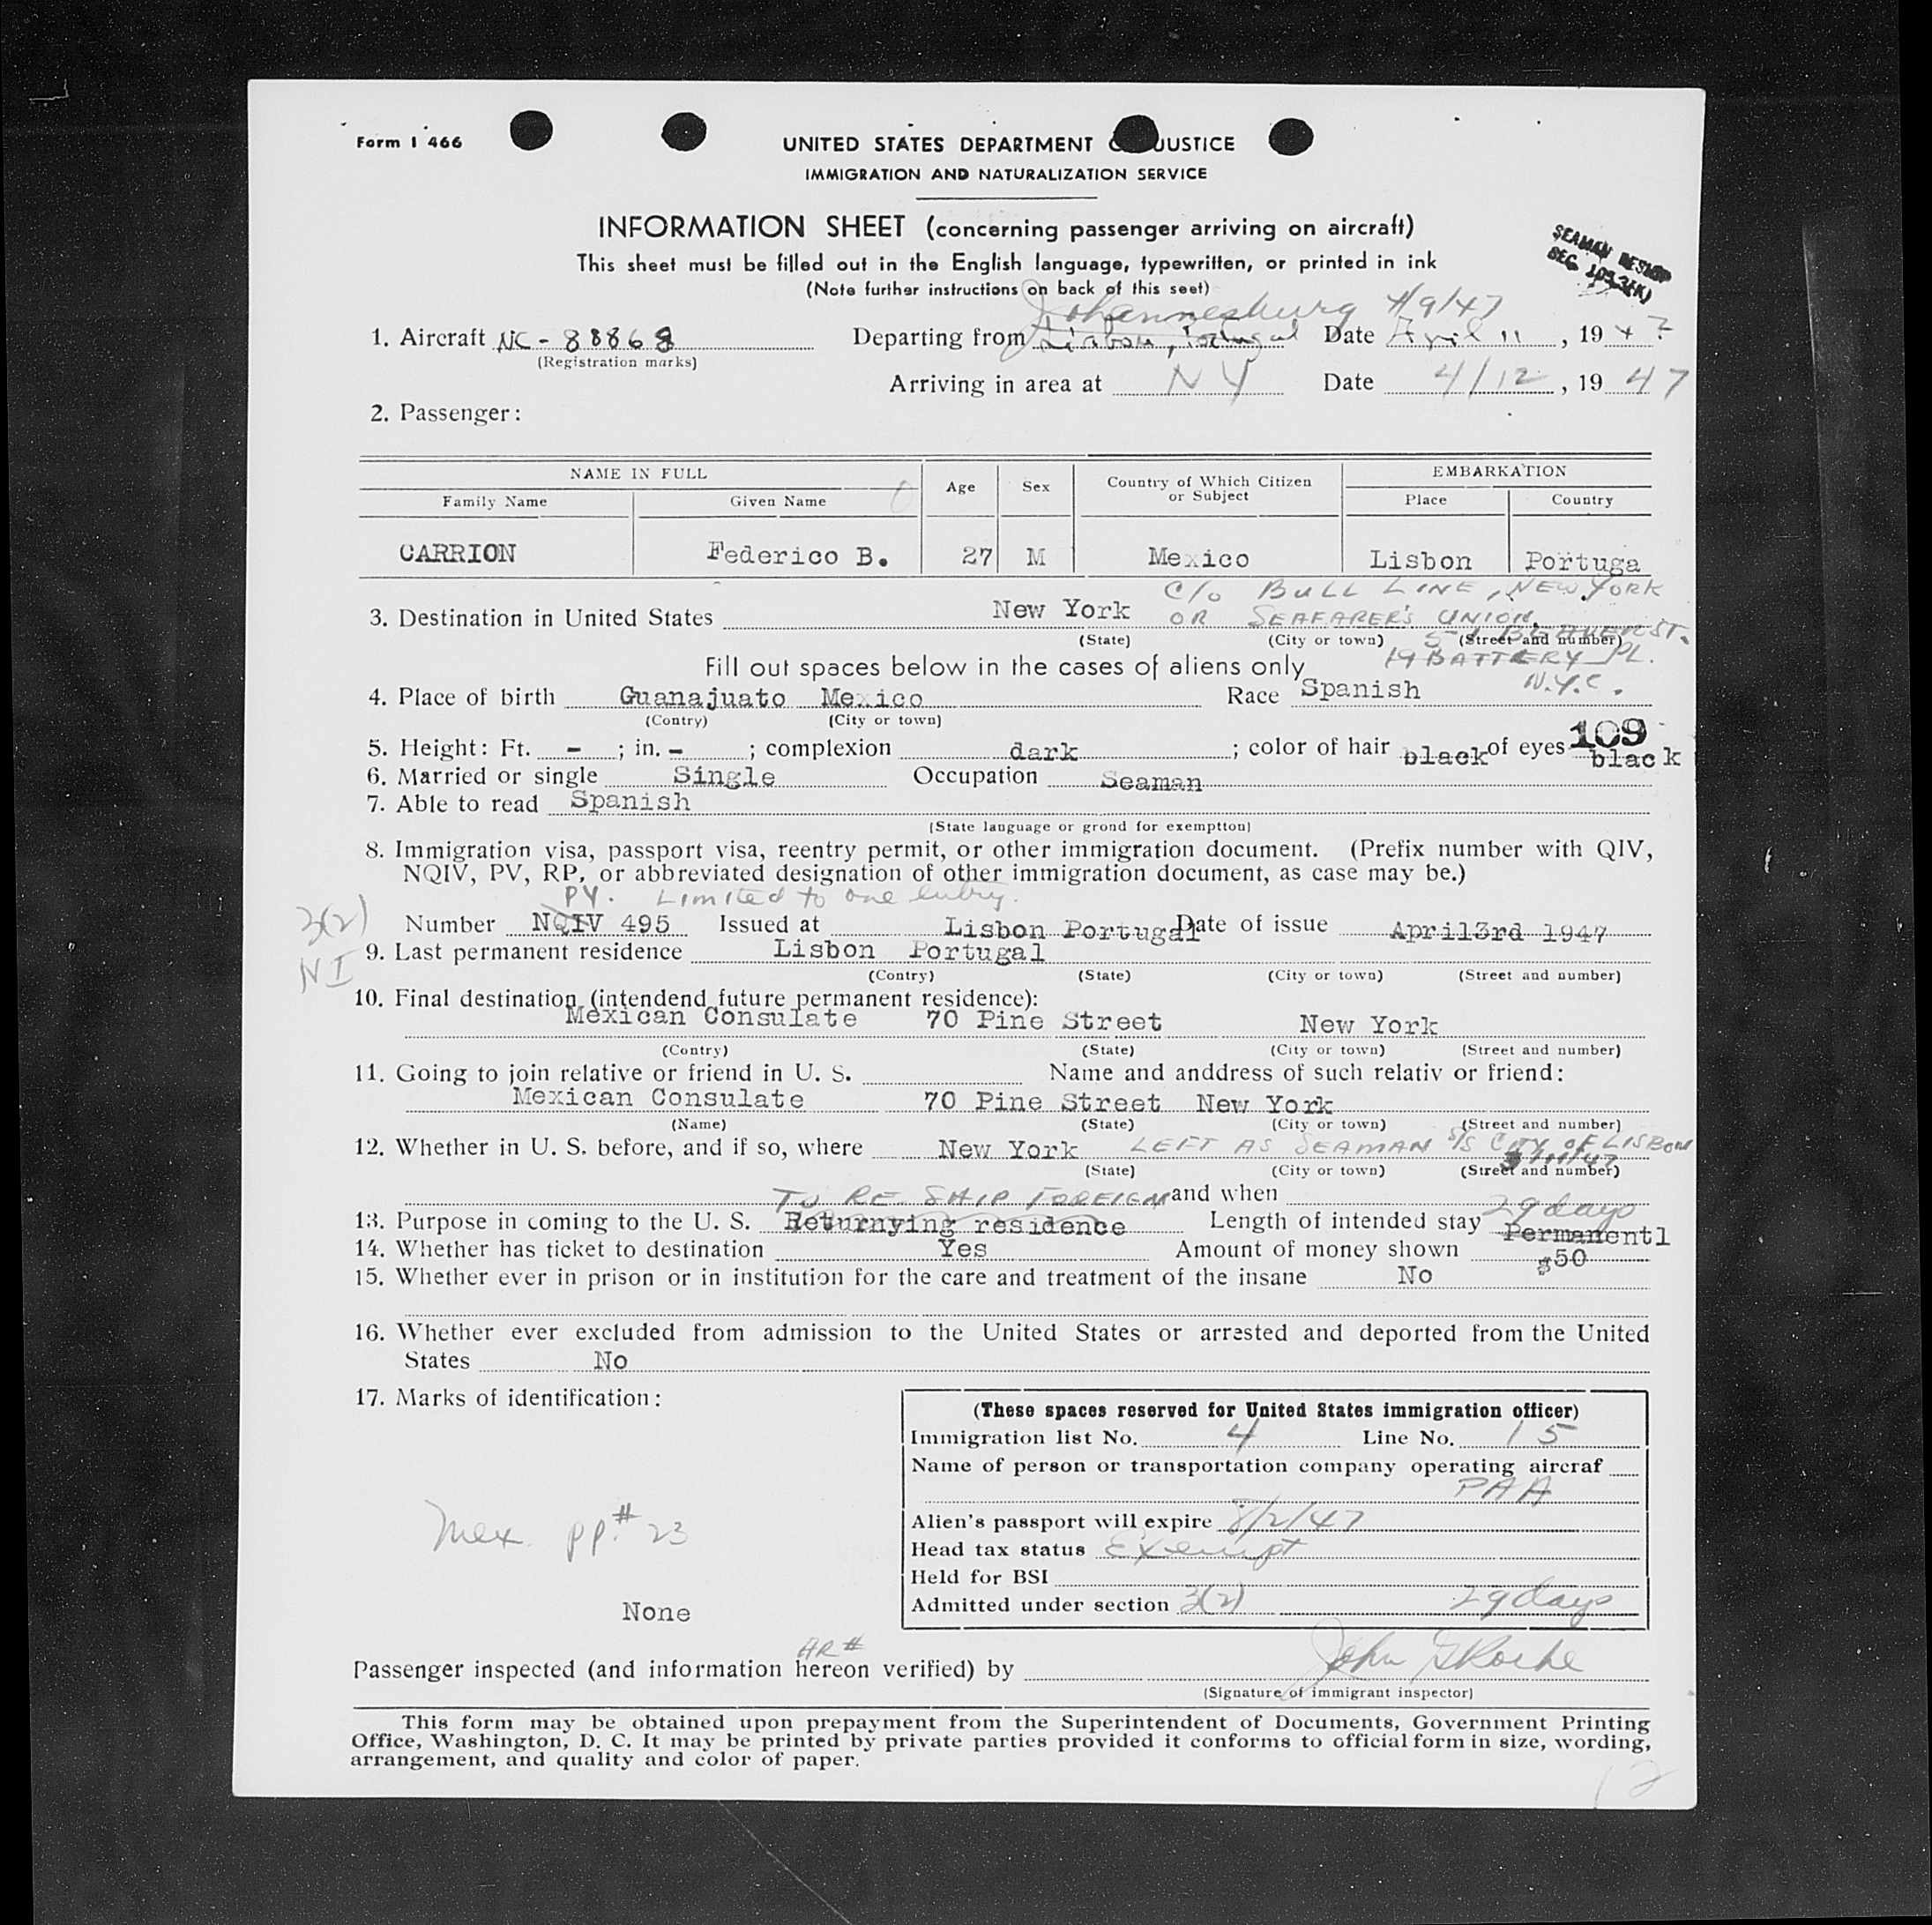 Form I 466
UNITED STATES DEPARTMENT JUSTICE
IMMIGRATION AND NATURALIZATION SERVICE
INFORMATION SHEET (concerning passenger arriving on aircraft)
SEAMAN
This sheet must be filled out in the English language, typewritten, or printed in ink
SEC.
(Note further instructions on back of this seet)
Johannesburg 4/9/47
1. Aircraft NC - 88868 Departing from Lisbon, Portugal Date April 11, 1947
(Registration marks)
Arriving in area at NY Date 4/12, 1947
2. Passenger:
NAME IN FULL Age Sex Country of Which Citizen or Subject EMBARKATION
Family Name Given Name Place Country
CARRION Federico B. 27 M Mexico Lisbon Portuga
C/O BULL LINE, NEW YORK
3. Destination in United States New York OR SEAFARER'S UNION,
(State) (City or town) (Street and number)
51 BEAVER ST.
Fill out spaces below in the cases of aliens only 19 BATTERY PL.
N.Y.C.
4. Place of birth Guanajuato Mexico Race Spanish
(Contry) (City or town)
109
5. Height: Ft. - ; in. - ; complexion dark ; color of hair black of eyes black
6. Married or single Single Occupation Seaman
7. Able to read Spanish
(State language or grond for exemptton)
8. Immigration visa, passport visa, reentry permit, or other immigration document. (Prefix number with QIV,
NQIV, PV, RP, or abbreviated designation of other immigration document, as case may be.)
PV. Limited to one entry.
3(2)
Number NQIV 495 Issued at Lisbon Portugal Date of issue April3rd 1947
NI
9. Last permanent residence Lisbon Portugal
(Contry) (State) (City or town) (Street and number)
10. Final destination (intendend future permanent residence):
Mexican Consulate 70 Pine Street New York
(Contry) (State) (City or town) (Street and number)
11. Going to join relative or friend in U. S. Name and anddress of such relativ or friend:
Mexican Consulate 70 Pine Street New York
(Name) (State) (City or town) (Street and number)
12. Whether in U. S. before, and if so, where New York LEFT AS SEAMAN S/S CITY OF LISBON
(State) (City or town) (Street and number)
TO RE SHIP FOREIGN and when 29 days
13. Purpose in coming to the U. S. Returnying residence Length of intended stay Permanentl
14. Whether has ticket to destination Yes Amount of money shown $50
15. Whether ever in prison or in institution for the care and treatment of the insane No
16. Whether ever excluded from admission to the United States or arrested and deported from the United
States No
17. Marks of identification:
Mex. pp. # 23
None
(These spaces reserved for United States immigration officer)
Immigration list No. 4 Line No. 15
Name of person or transportation company operating aircraf
PAA
Alien's passport will expire 8/2/47
Head tax status Exempt
Held for BSI
Admitted under section 3(2) 29 days
AR #
Passenger inspected (and information hereon verified) by John G Roche
(Signature of immigrant inspector)
This form may be obtained upon prepayment from the Superintendent of Documents, Government Printing
Office, Washington, D. C. It may be printed by private parties provided it conforms to official form in size, wording,
arrangement, and quality and color of paper.
12